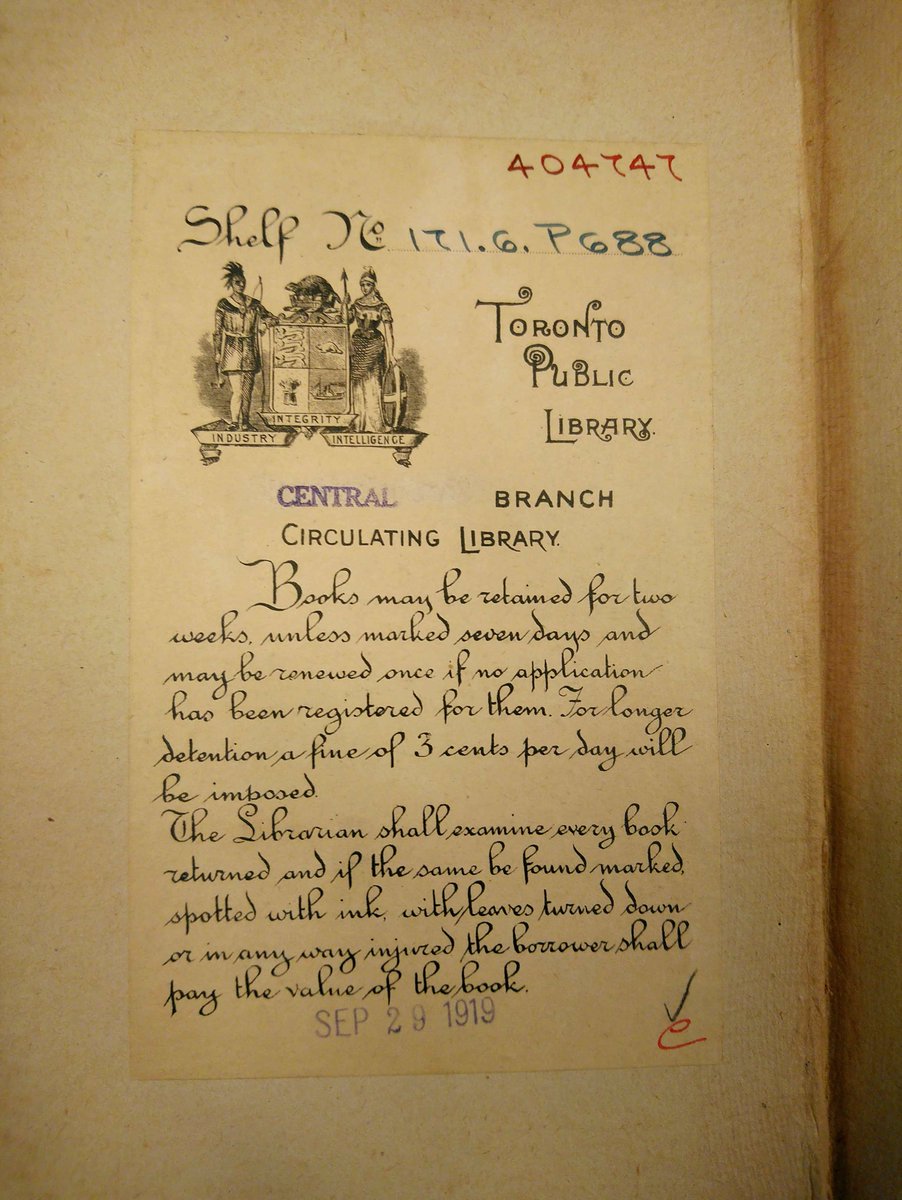 404747
Shelf No. 171.6.P688
TORONTO
PUBLIC
LIBRARY.
INTEGRITY
INDUSTRY INTELLIGENCE
CENTRAL BRANCH
CIRCULATING LIBRARY.
Books may be retained for two
weeks, unless marked seven days and
may be renewed once if no application
has been registered for them. For longer
detention a fine of 3 cents per day will
be imposed.
The Librarian shall examine every book
returned and if the same be found marked,
spotted with ink, with leaves turned down
or in any way injured the borrower shall
pay the value of the book.
SEP 29 1919